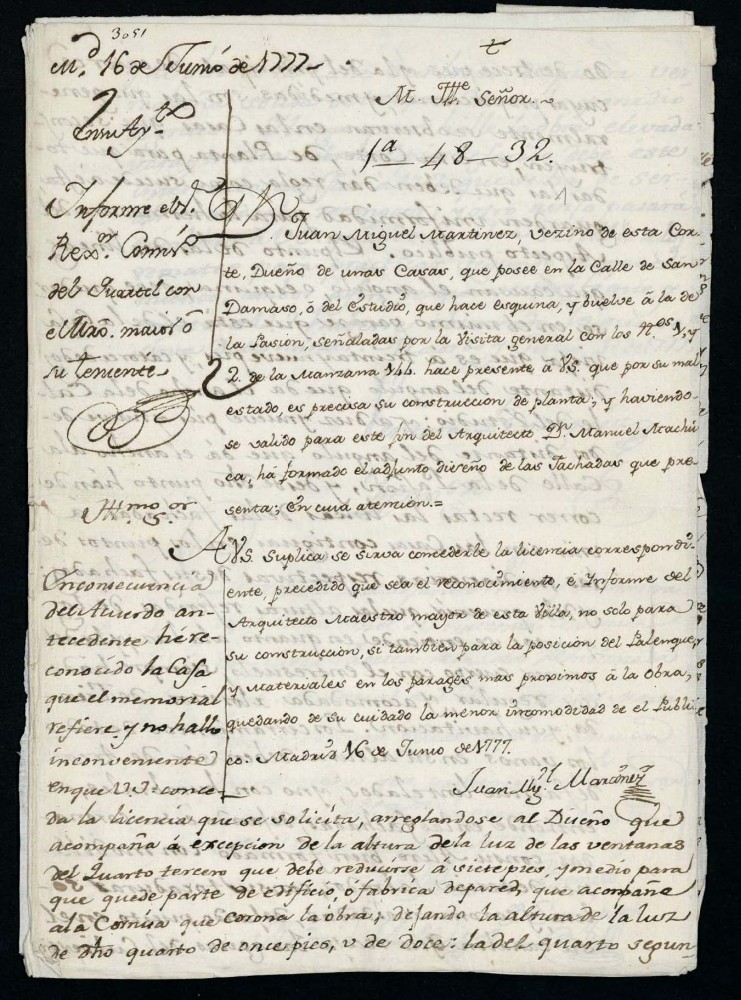 3051
M.d 16 de Junio de 1777.
En su Ay.to
Informe el s.r
Rex.or Comis.o
del Quartel con
el Mro. maior ô
su teniente
+
M. Ill.e Señor.
1a — 48 — 32.
1
Juan Miguel Martinez, vezino de esta Cor-
te, Dueño de unas Casas, que posee en la Calle de San
Damaso, ò del Estudio, que hace esquina, y buelve â la de
la Pasion, señaladas por la Visita general con los N.os 1, y
2. de la Manzana 144. hace presente â VS. que por su mal
estado, es precisa su construccion de planta; y haviendo-
se valido para este fin del Arquitecto D.n Manuel Machu-
ca, hà formado el adjunto diseño de las Fachadas que pre-
senta; En cuia atencion.=
A VS. suplica se sirva concederle la licencia correspondi-
ente, precedido que sea el reconocimiento, è Informe del
Arquitecto Maestro mayor de esta Villa, no solo para
su construccion, si tambien para la posicion del Palenque,
y Materiales en los parages mas proximos â la Obra,
quedando de su cuidado la menor incomodidad de el Publi-
co. Madrid 16 de Junio de 1777.
Juan Mig.l Martinez
Ill.mo S.or
En consecuencia
del Acuerdo an-
tecedente he re-
conocido la Casa
que el memorial
refiere y no hallo
inconveniente
en que V.S. conce-
da la licencia que se solicita, arreglandose al Diseño que
acompaña â excepcion de la altura de la luz de las ventanas
del Quarto tercero que debe reducirse â siete pies, y medio para
que quede parte de edificio, ô fabrica de pared, que acompañe
a la Cornisa que corona la obra; dejando la altura de la luz
de dho quarto de once pies, u de doce: la del quarto segun-